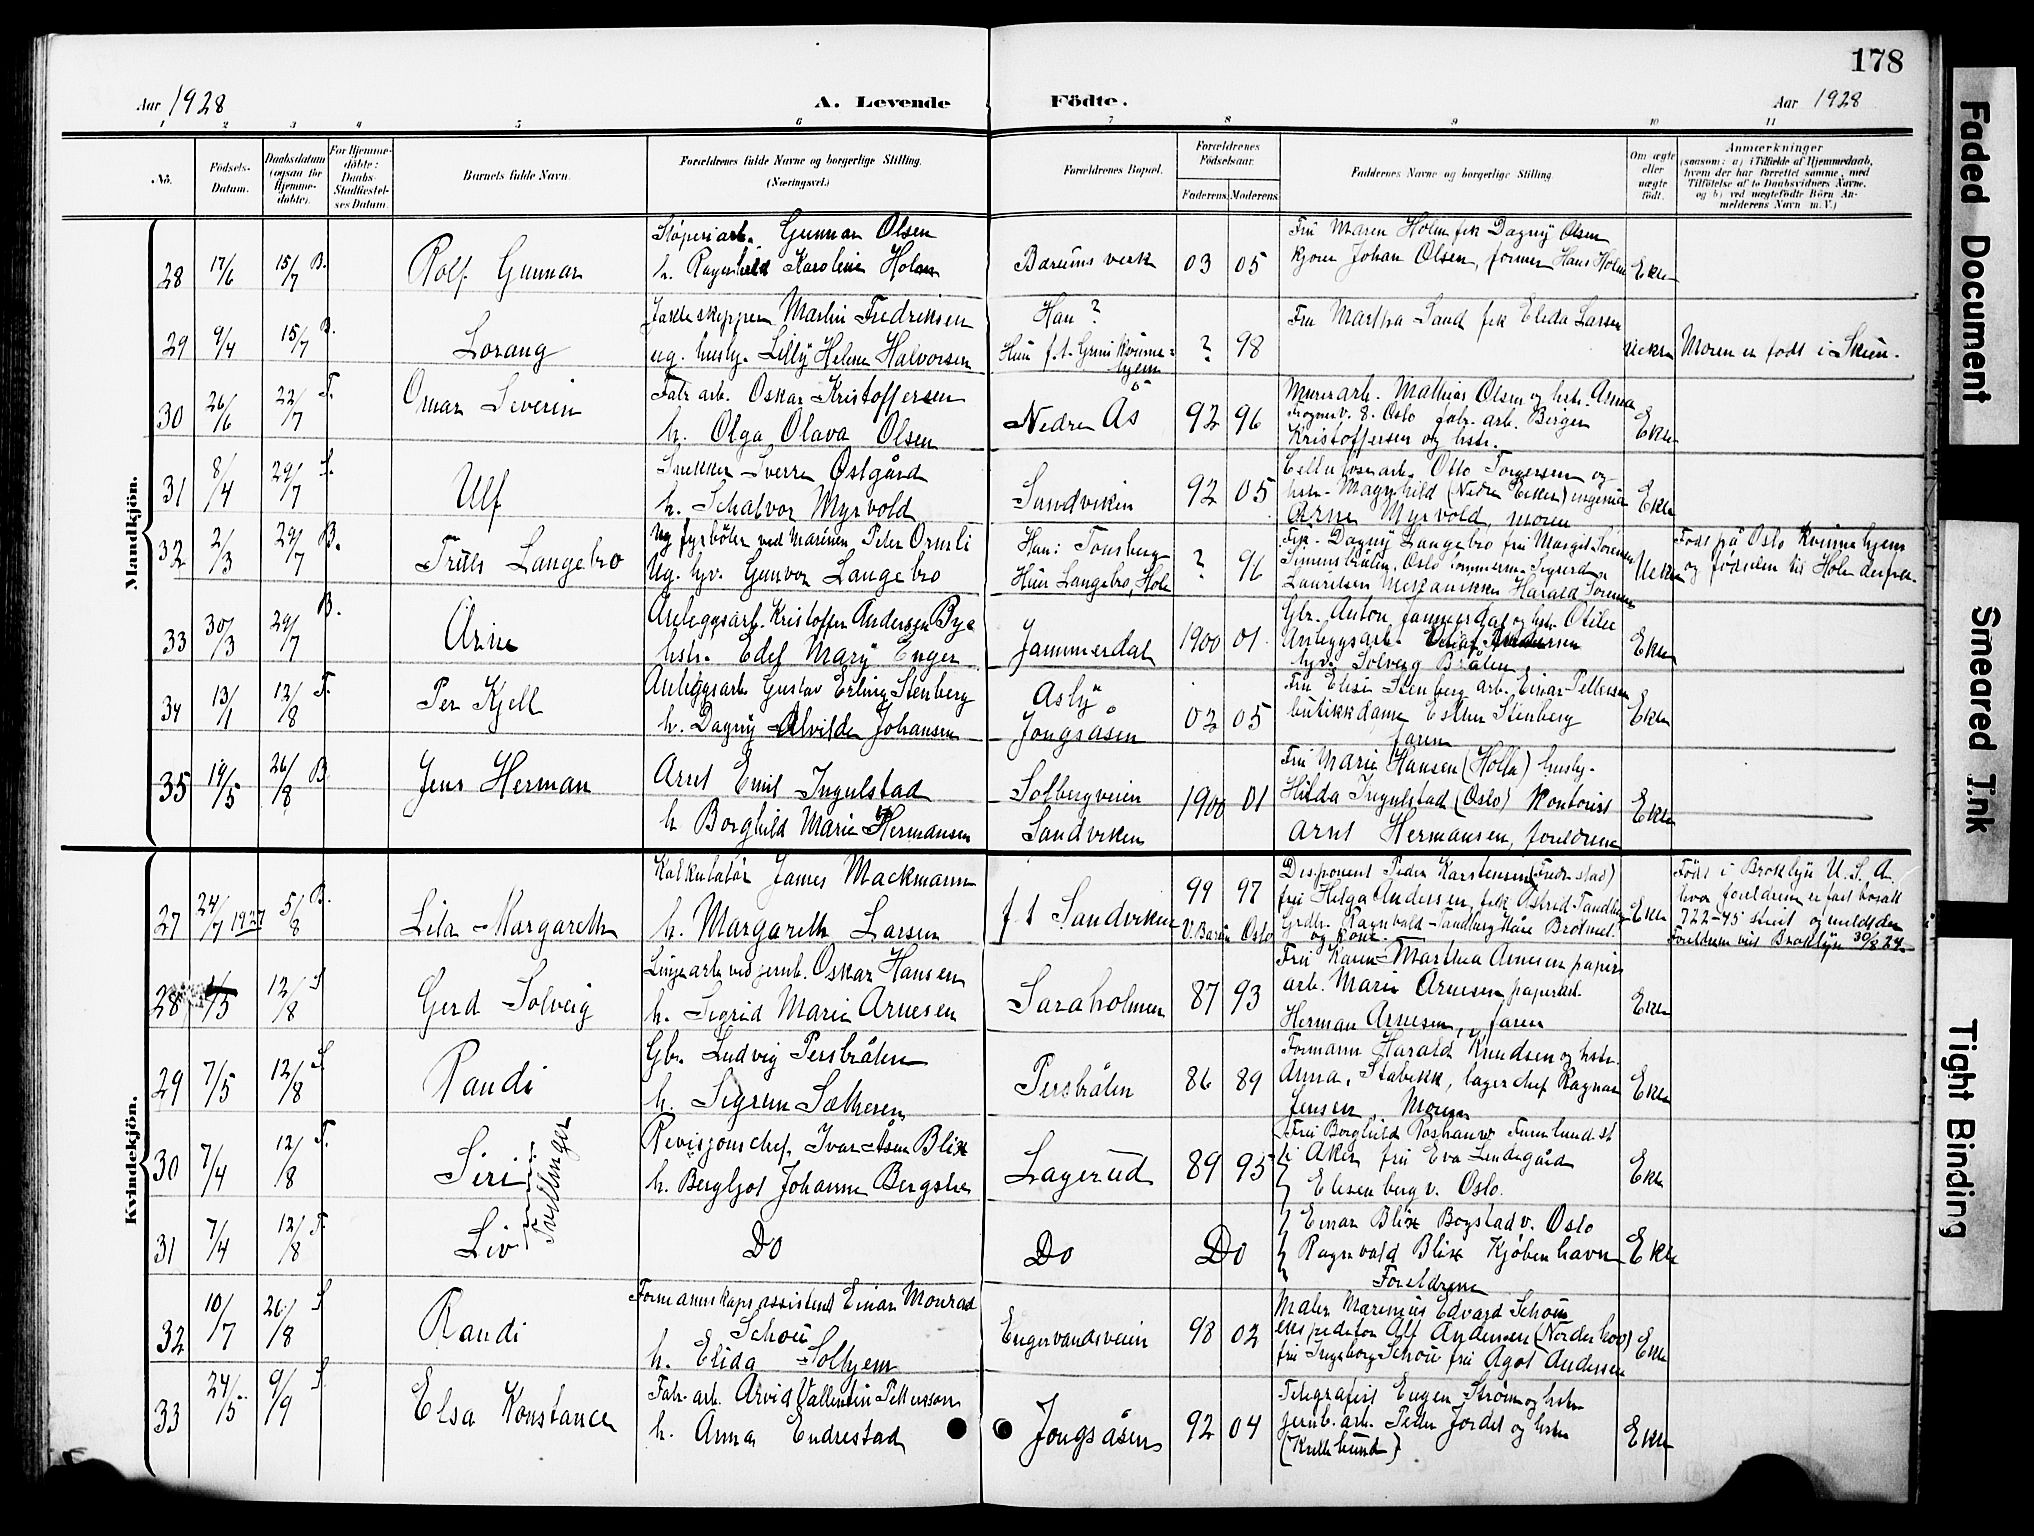 178
Aar 1928
A. Levende Födte.
Aar 1928
1 2 3 4 5 6 7 8 9 10 11
No.
Födsels-Datum.
Daabsdatum (ogsaa for Hjemme-döbte).
For Hjemme-döbte: Daabs-Stadfæstel-ses Datum.
Barnets fulde Navn.
Forældrenes fulde Navne og borgerlige Stilling.
(Næringsvei.)
Forældrenes Bopæl.
Forældrenes Födselsaar.
Faderens. Moderens.
Faddernes Navne og borgerlige Stilling.
Om ægte eller uægte födt.
Anmærkninger
(saasom: a) i Tilfælde af Hjemmedaab,
hvem der har forrettet samme, med
Tilföielse af to Daabsvidners Navne.
og b) ved uægtefödte Börn An-
melderens Navn m. V.)
Mandkjön.
28 17/6 15/7 B. Rolf Gunnar
Støperiarb. Gunnar Olsen
h. Ragnhild Karoline Holm
Bærums verk 03 05
Fru Maren Holm frk Dagny Olsen
kjører Johan Olsen, former Hans Holm
Ekte
29 9/4 15/7 B. Lorang
Jakteskipper Martin Fredriksen
ug. husby. Lilly Helene Halvorsen
Han ?
Hun f.t. Grini Kvinne=
hjem
? 98
Fru Martha Sand frk Elida Larsen
Uekte
Moren er født i Skien.
30 26/6 22/7 T. Ornar Severin
Fabr arb. Oskar Kristoffersen
h. Olga Olava Olsen
Nedre Ås 92 96
Murerarb. Mathias Olsen og hstr. Anna
Frognerv. 8. Oslo fabr. arb. Birger
Kristoffersen og hstr.
Ekte
31 8/4 29/7 S. Ulf
Snekker Sverre Østgård
h. Schalvor Myrvold
Sandviken 92 05
Cellulosearb. Otto Torgersen og
hstr. Magnhild (Nedre Eiker) ingeniør
Arne Myrvold, moren
Ekte
32 2/3 29/7 B. Truls Langebro
Ug fyrbøter ved Marinen Peter Ormli
Ug. hyv. Gunvor Langebro
Han: Tønsberg
Hun Langebro, Hole
? 96
Frk. Dagny Langebro fru Margit Sørensen
Simensbråten, Oslo tømmerm. Sigurd
Lauritsen Mekaniker Harald Sørensen
Uekte
Født på Oslo Kvinnehjem
og fødselen til Hole derfra
33 30/3 29/7 B. Arne
Anleggsarb. Kristoffer Andersen Bye
hstr. Edel Mary Enger
Jammerdal 1900 01.
Gbr. Anton Jammerdal og hstr. Otilie
Anleggsarb. Andersen
hyv. Solveig Bråten.
Ekte
34 13/1 12/8 T. Per Kjell
Anleggsarb Gustav Erling Stenberg
h. Dagny Alvilde Johansen
Asly
Jongsåsen
02 05
Fru Elise Stenberg arb. Einar Pettersen
butikkdame Esther Stenberg
faren
Ekte
35 19/5 26/8 B. Jens Herman
Arnt Emil Ingulstad
h Borghild Marie Hermansen
Solbergveien
Sandviken
1900 01
Fru Marie Hansen (Holla) husby.
Hilda Ingulstad (Oslo) kontorist
Arnt Hermansen, foreldrene
Ekte
Kvindekjön.
27 24/7 1927 5/8 B. Lila Margareth
Kalkulatør James Mackmann
h. Margareth Larsen
f.t Sandviken
99 97
V. Bærum Oslo
Disponent Peder Karstensen (Fredr.stad)
fru Helga Andersen, frk Astrid Tandberg
Grdbr. Ragnvald Tandberg
og kone.
Ekte
Født i Broklyn U. S. A.
hvor foreldrene er fast bosatt
722-45 street og meldt den
Foreldrene viet Broklyn 30/8 24
28 /5 12/8 S Gerd Solveig
Linjearb ved jernb. Oskar Hansen
h. Sigrid Marie Arnesen
Saraholmen 87 93
Fru Karen Marthea Arnesen papir
arb. Marie Arnesen papirarb.
Herman Arnesen, faren
Ekte
29 7/5 12/8 S Randi
Gbr. Ludvig Persbråten
h. Sigrun Sætheren
Persbråten 86 89
Formann Harald Knudsen og hstr.
Anna, Stabekk, lagerchef Ragnar
Jensen, Moren
Ekte
30 7/4 12/8 T. Siri
Tvillinger
Revisjonschef. Ivar Åsen Blix
h. Bergljot Johanne Bergslie
Lagerud 89 95
Fru Borghild
i Aker fru Eva Lindegård
Elisenbergv. Oslo.
Ekte
31 7/4 12/8 T. Liv
Do Do Do
Einar Blix Bogstadv. Oslo
Ragnvald Blix Kjøbenhavn
Foreldrene
Ekte
32 10/7 26/8 S Randi
Formannskapsassistent Einar Monrad
Schou
h. Elida Solhjem
Engervandsveien 98 02
Maler Marenius Edvard Schou
ekspeditør Alf Andersen (Norderhov)
fru Ingeborg Schou fru Agot Andersen
Ekte
33 24/5 9/9 S. Elsa Konstance
Fabr. arb. Arvid Vallentin Pettersson
h. Anna Endrestad
Jongsåsen 92 04
Telegrafist Eugen Strøm og hstr
jernb. arb. Peder Jordet og hstr
(Kullebund)
Ekte
Faded Document
Smeared Ink
Tight Binding